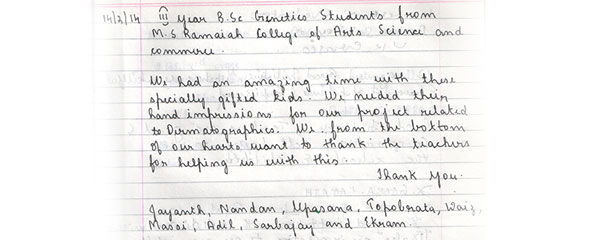 14/2/14 III Year B.Sc Genetics Students from
M.S Ramaiah College of Arts Science and
commerce.
We had an amazing time with these
specially gifted kids. We needed their
hand impressions for our project related
to Dermatographics. We from the bottom
of our hearts want to thank the teachers
for helping us with this.
Thank You.
Jayanth, Nandan, Upasana, Topobrata, Waiz,
Masai, Adil, Sarbajay and Ekram